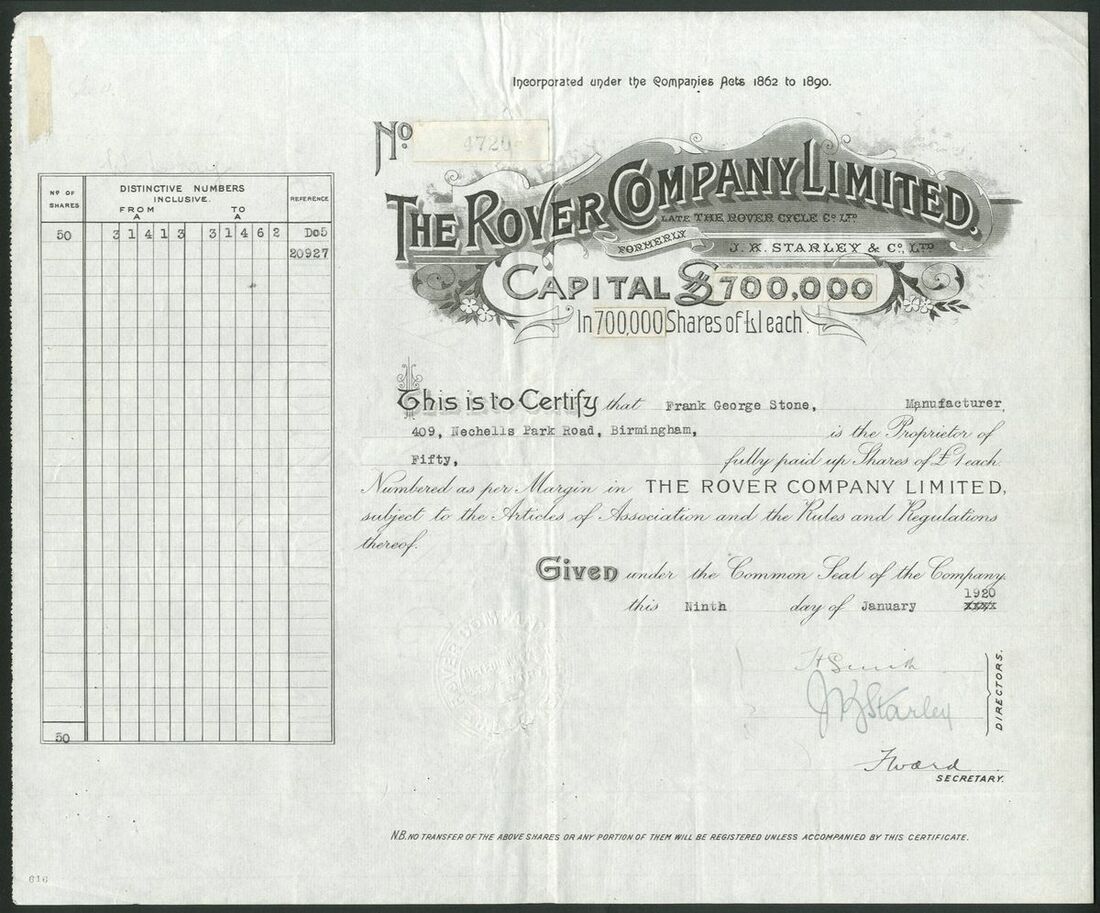 Incorporated under the Companies Acts 1862 to 1890.
No. 4720
THE ROVER COMPANY LIMITED.
LATE THE ROVER CYCLE Co. LTD
FORMERLY J. K. STARLEY & Co., LTD
CAPITAL £700,000
In 700,000 Shares of £1 each.
No OF SHARES
DISTINCTIVE NUMBERS INCLUSIVE.
FROM TO
A A
REFERENCE
50 31413 31462 Do5
20927
50
This is to Certify that Frank George Stone, Manufacturer,
409, Nechells Park Road, Birmingham, is the Proprietor of
Fifty, fully paid up Shares of £1 each.
Numbered as per Margin in THE ROVER COMPANY LIMITED,
subject to the Articles of Association and the Rules and Regulations
thereof.
Given under the Common Seal of the Company.
1920
this Ninth day of January XXXX
H Smith
J K Starley
DIRECTORS.
F Ward
SECRETARY.
N.B. NO TRANSFER OF THE ABOVE SHARES OR ANY PORTION OF THEM WILL BE REGISTERED UNLESS ACCOMPANIED BY THIS CERTIFICATE.
616